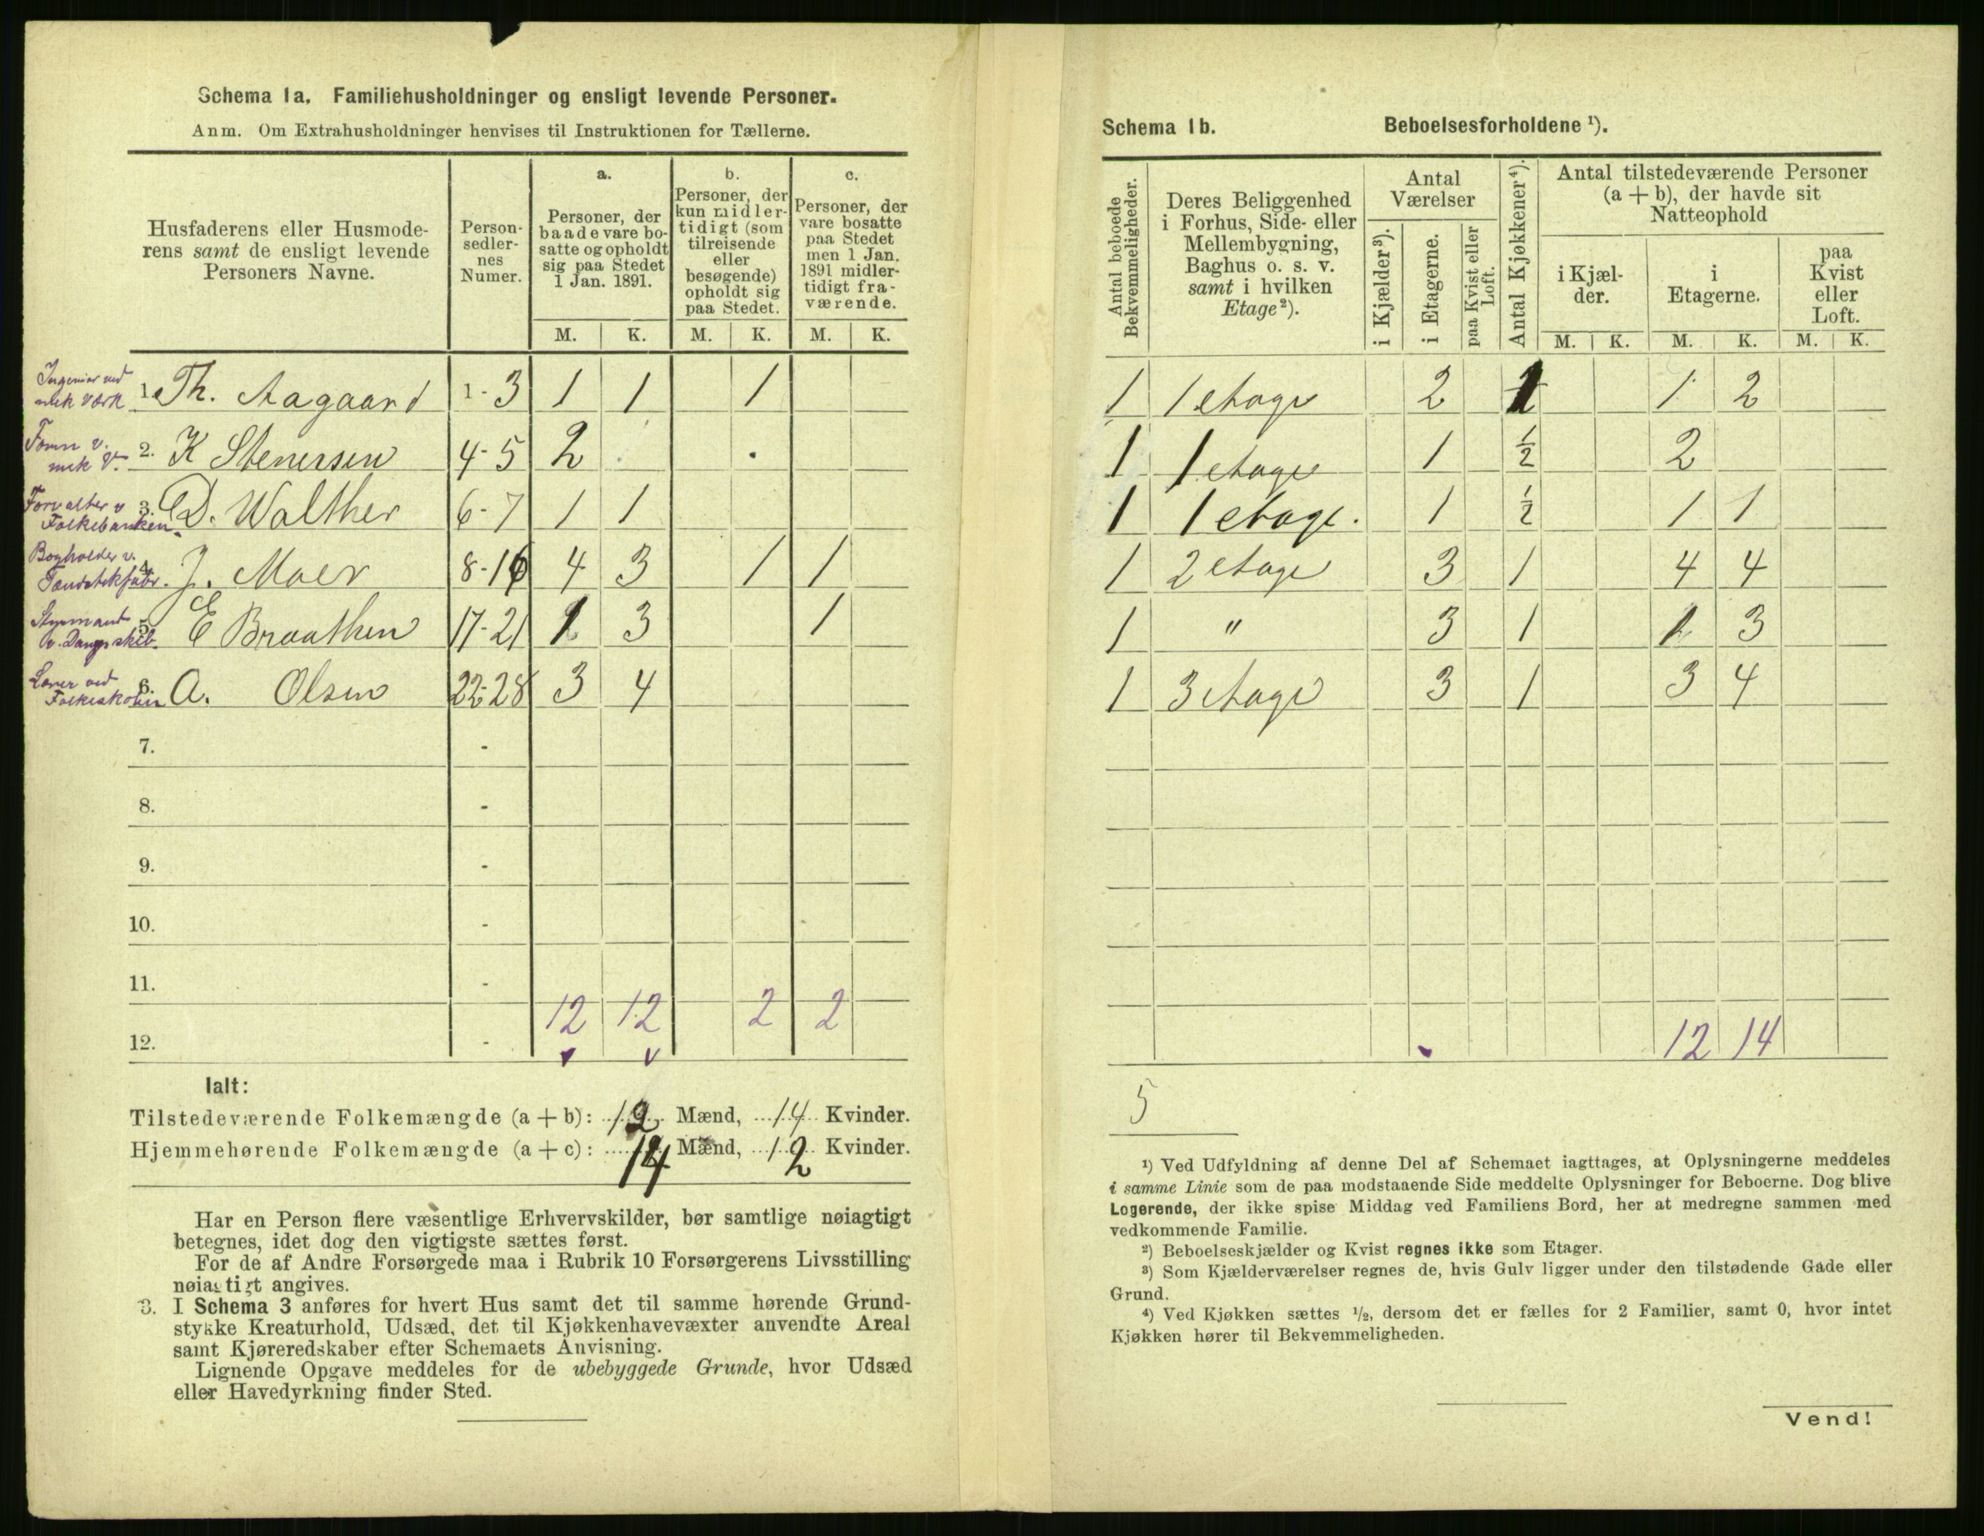 Schema 1a. Familiehusholdninger og ensligt levende Personer.
Anm. Om Extrahusholdninger henvises til Instruktionen for Tællerne.
Husfaderens eller Husmode-
rens samt de ensligt levende
Personers Navne.
Person-
sedler-
nes
Numer.
a.
Personer, der
baade vare bo-
satte og opholdt
sig paa Stedet
1 Jan. 1891.
b.
Personer, der
kun midler-
tidigt (som
tilreisende
eller
besøgende)
opholdt sig
paa Stedet.
c.
Personer, der
vare bosatte
paa Stedet
men 1 Jan.
1891 midler-
tidigt fra-
værende.
M. K. M. K. M. K.
Ingeniør ved
mek Værk
1. Th. Aagaard 1-3 1 1 1
Form v.
mek V.
2. K Stenersen 4-5 2
Forvalter v
Folkebanken
3. D. Walther 6-7 1 1
Bogholder v.
4. J. Moer 8-16 4 3 1 1
Styrmand
v. Dampskib.
5. E Braathen 17-21 1 3 1
Lærer ved
Folkeskolen
6. A. Olsen 22-28 3 4
7. -
8. -
9. -
10. -
11. -
12 12 2 2
12. -
Ialt:
Tilstedeværende Folkemængde (a + b): 12 Mænd, 14 Kvinder.
Hjemmehørende Folkemængde (a + c): 14 Mænd, 12 Kvinder.
Har en Person flere væsentlige Erhvervskilder, bør samtlige nøiagtigt
betegnes, idet dog den vigtigste sættes først.
For de af Andre Forsørgede maa i Rubrik 10 Forsørgerens Livsstilling
nøiagtigt angives.
3. I Schema 3 anføres for hvert Hus samt det til samme hørende Grund-
stykke Kreaturhold, Udsæd, det til Kjøkkenhavevæxter anvendte Areal
samt Kjøreredskaber efter Schemaets Anvisning.
Lignende Opgave meddeles for de ubebyggede Grunde, hvor Udsæd
eller Havedyrkning finder Sted.
Schema 1b. Beboelsesforholdene ¹).
Antal beboede
Bekvemmeligheder.
Deres Beliggenhed
i Forhus, Side- eller
Mellembygning,
Baghus o. s. v.
samt i hvilken
Etage²).
Antal
Værelser
i Kjælder³).
i Etagerne.
paa Kvist eller
Loft.
Antal Kjøkkener⁴).
Antal tilstedeværende Personer
(a + b), der havde sit
Natteophold
i Kjæl-
der.
i
Etagerne.
paa
Kvist
eller
Loft.
M. K. M. K. M. K.
1 1 etage 2 1 1 2
1 1 etage 1 ½ 2
1 1 etage. 1 ½ 1 1
1 2 etage 3 1 4 4
1 " 3 1 1 3
1 3 etage 3 1 3 4
12 14
5
¹) Ved Udfyldning af denne Del af Schemaet iagttages, at Oplysningerne meddeles
i samme Linie som de paa modstaaende Side meddelte Oplysninger for Beboerne. Dog blive
Logerende, der ikke spise Middag ved Familiens Bord, her at medregne sammen med
vedkommende Familie.
²) Beboelseskjælder og Kvist regnes ikke som Etager.
³) Som Kjælderværelser regnes de, hvis Gulv ligger under den tilstødende Gade eller
Grund.
⁴) Ved Kjøkken sættes ½, dersom det er fælles for 2 Familier, samt 0, hvor intet
Kjøkken hører til Bekvemmeligheden.
Vend!